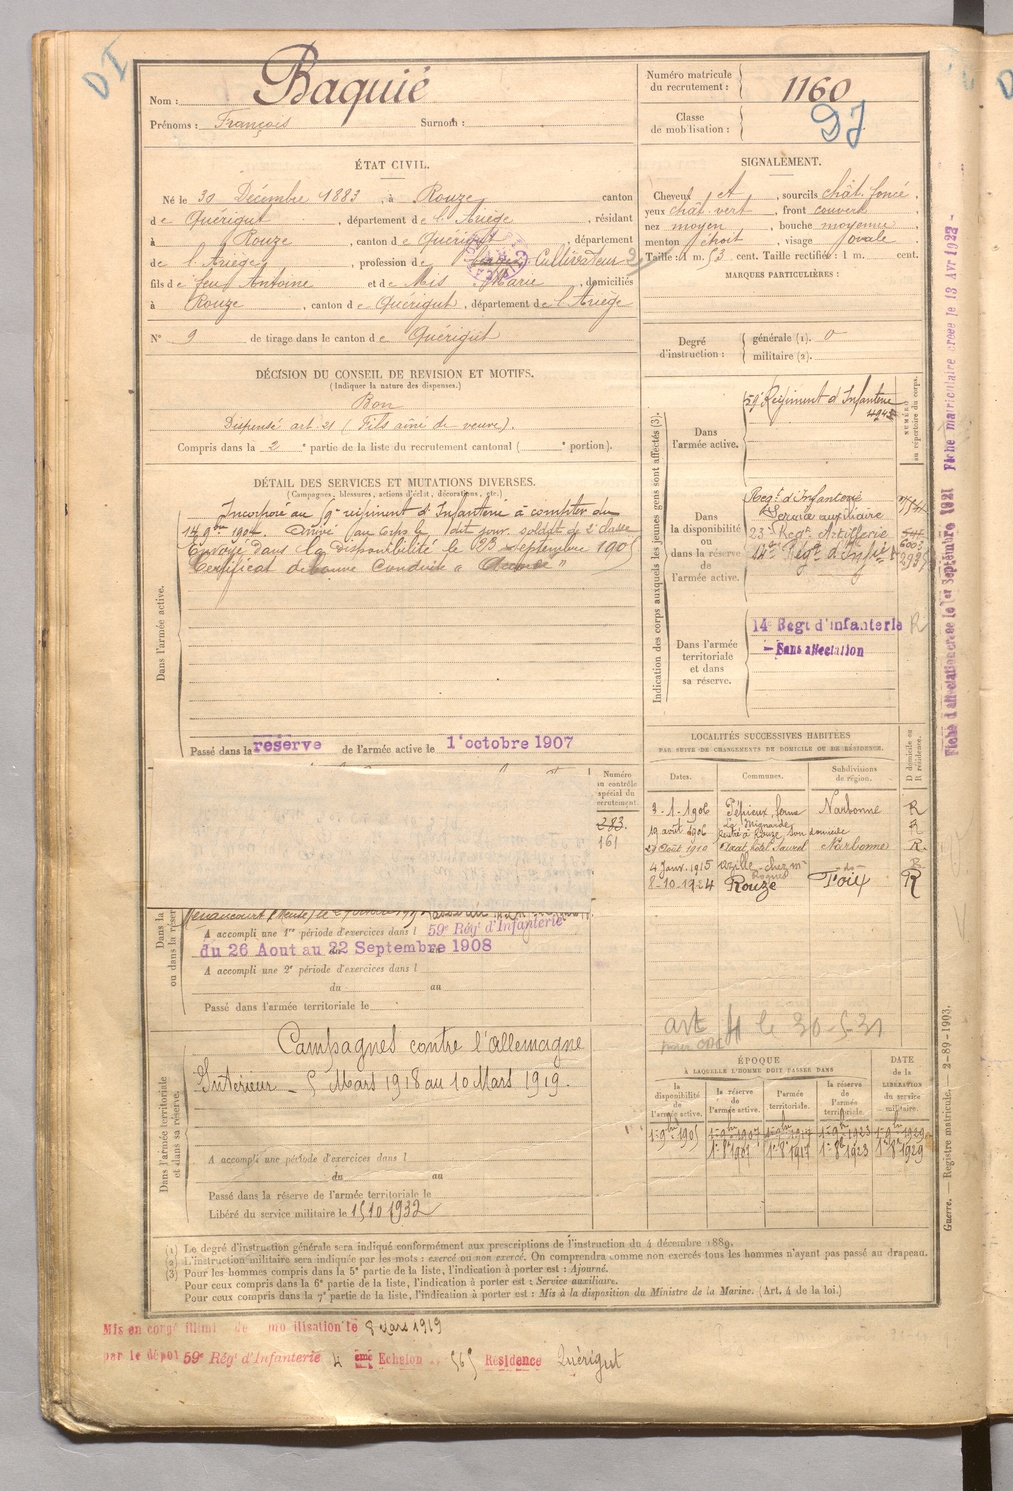 Baquié
Nom :
Prénoms : François Surnom :
Numéro matricule
du recrutement : 1160
Classe
de mobilisation :
ÉTAT CIVIL.
Né le 30 Décembre 1883, à Rouze canton
de Quérigut, département de l'Ariège, résidant
à Rouze, canton de Quérigut, département
de l'Ariège, profession de Cultivateur
fils de feu Antoine et de Mis Marie, domiciliés
à Rouze, canton de Quérigut, département de l'Ariège
N° 9 de tirage dans le canton de Quérigut
SIGNALEMENT.
Cheveux et, sourcils chât. foncé,
yeux chât. vert, front couvert,
nez moyen, bouche moyenne,
menton étroit, visage ovale.
Taille : 1 m. 53 cent. Taille rectifiée : 1 m. cent.
MARQUES PARTICULIÈRES :
Degré
d'instruction :
générale (1). 0
militaire (2).
DÉCISION DU CONSEIL DE REVISION ET MOTIFS.
(Indiquer la nature des dispenses.)
Bon
Dispensé art. 21 (Fils aîné de veuve).
Compris dans la 2e partie de la liste du recrutement cantonal ( e portion).
DÉTAIL DES SERVICES ET MUTATIONS DIVERSES.
(Campagnes, blessures, actions d'éclat, décorations, etc.)
Incorporé au 59e régiment d'Infanterie à compter du
14 9bre 1904. Arrivé au Corps le dit jour. soldat de 2e classe
Envoyé dans la disponibilité le 23 Septembre 1905
Certificat de bonne Conduite « Accordé »
Dans l'armée active.
Passé dans la réserve de l'armée active le 1er octobre 1907
Indication des corps auxquels les jeunes gens sont affectés (3).
Dans
l'armée active.
59e Régiment d'Infanterie
NUMÉRO
au répertoire du corps.
Dans
la disponibilité
ou
dans la réserve
de
l'armée active.
Regt d'Infanterie
Service auxiliaire
23e Regt Artillerie
14e Regt d'Infie
Dans l'armée
territoriale
et dans
sa réserve.
14e Regt d'infanterie R
Sans affectation
Fiche d'affectation créée le 1er Septembre 1921 Fiche matriculaire créée le 13 Avr 1922
LOCALITÉS SUCCESSIVES HABITÉES
PAR SUITE DE CHANGEMENTS DE DOMICILE OU DE RÉSIDENCE.
Dates. Communes. Subdivisions de région. D domicile ou R résidence.
3-1-1906 Pépieux, ferme La Mignarde Narbonne R
19 août 1906 rentré à Rouze, son domicile R
27 Août 1910 Axat, hôtel Saurel Narbonne R.
4 Janv. 1915 Azille chez Mr -do- R
8-10-1924 Rouze Foix R
Numéro
au contrôle
spécial du
recrutement.
283.
161
Dans la
ou dans la réser
A accompli une 1re période d'exercices dans l 59e Rég' d'Infanterie
du 26 Aout au 22 Septembre 1908
A accompli une 2e période d'exercices dans l
du au
Passé dans l'armée territoriale le
art 41 le 30-5-31
Campagnes contre l'allemagne
Intérieur - 5 Mars 1918 au 10 Mars 1919.
Dans l'armée territoriale
et dans sa réserve.
A accompli une période d'exercices dans l
du au
Passé dans la réserve de l'armée territoriale le
Libéré du service militaire le 15 10 1932
ÉPOQUE
À LAQUELLE L'HOMME DOIT PASSER DANS
DATE
de la
LIBÉRATION
du service
militaire.
la disponibilité de l'armée active. la réserve de l'armée active. l'armée territoriale. la réserve de l'armée territoriale.
1-9bre 1905 1-9bre 1907 1-9bre 1917 1-9bre 1923 1-9bre 1929
1er 8bre 1907 1er 8bre 1917 1er 8bre 1923 1er 8bre 1929
Guerre. — Registre matricule. — 2-89-1903.
(1) Le degré d'instruction générale sera indiqué conformément aux prescriptions de l'instruction du 4 décembre 1889.
(2) L'instruction militaire sera indiquée par les mots : exercé ou non exercé. On comprendra comme non exercés tous les hommes n'ayant pas passé au drapeau.
(3) Pour les hommes compris dans la 5e partie de la liste, l'indication à porter est : Ajourné.
Pour ceux compris dans la 6e partie de la liste, l'indication à porter est : Service auxiliaire.
Pour ceux compris dans la 7e partie de la liste, l'indication à porter est : Mis à la disposition du Ministre de la Marine. (Art. 4 de la loi.)
Mis en congé illimi de mo ilisation le 8 Mars 1919
par le dépôt 59e Rég' d'Infanterie 4 ème Echelon 565 Résidence Quérigut